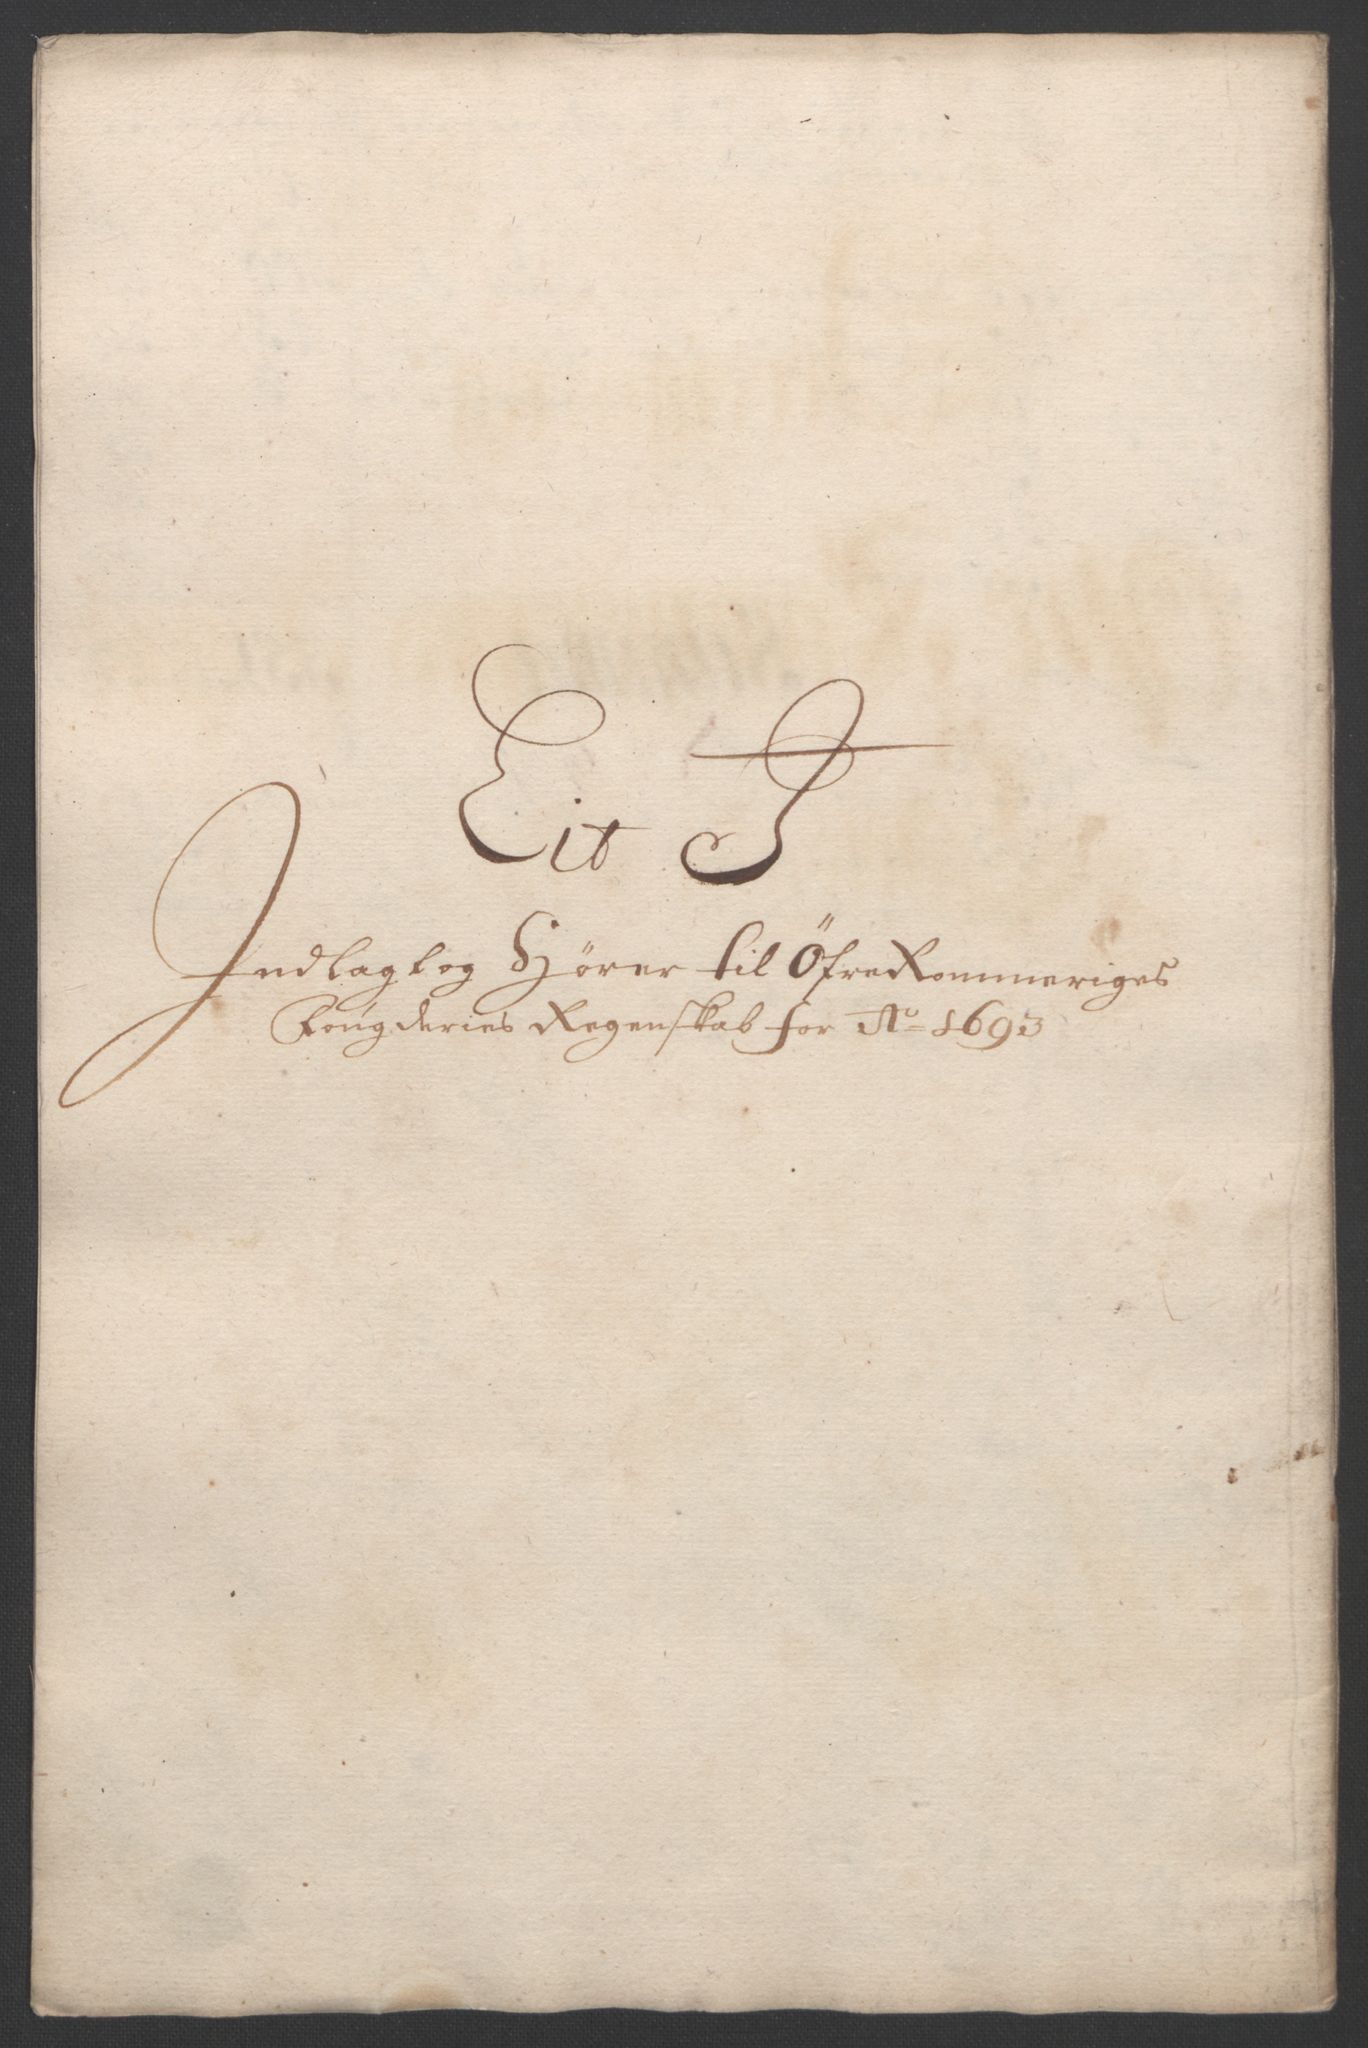 Lit J
Indlagt og Hörer til Öfre Rommeriges
Fougderies Regenskab for Ao 1693